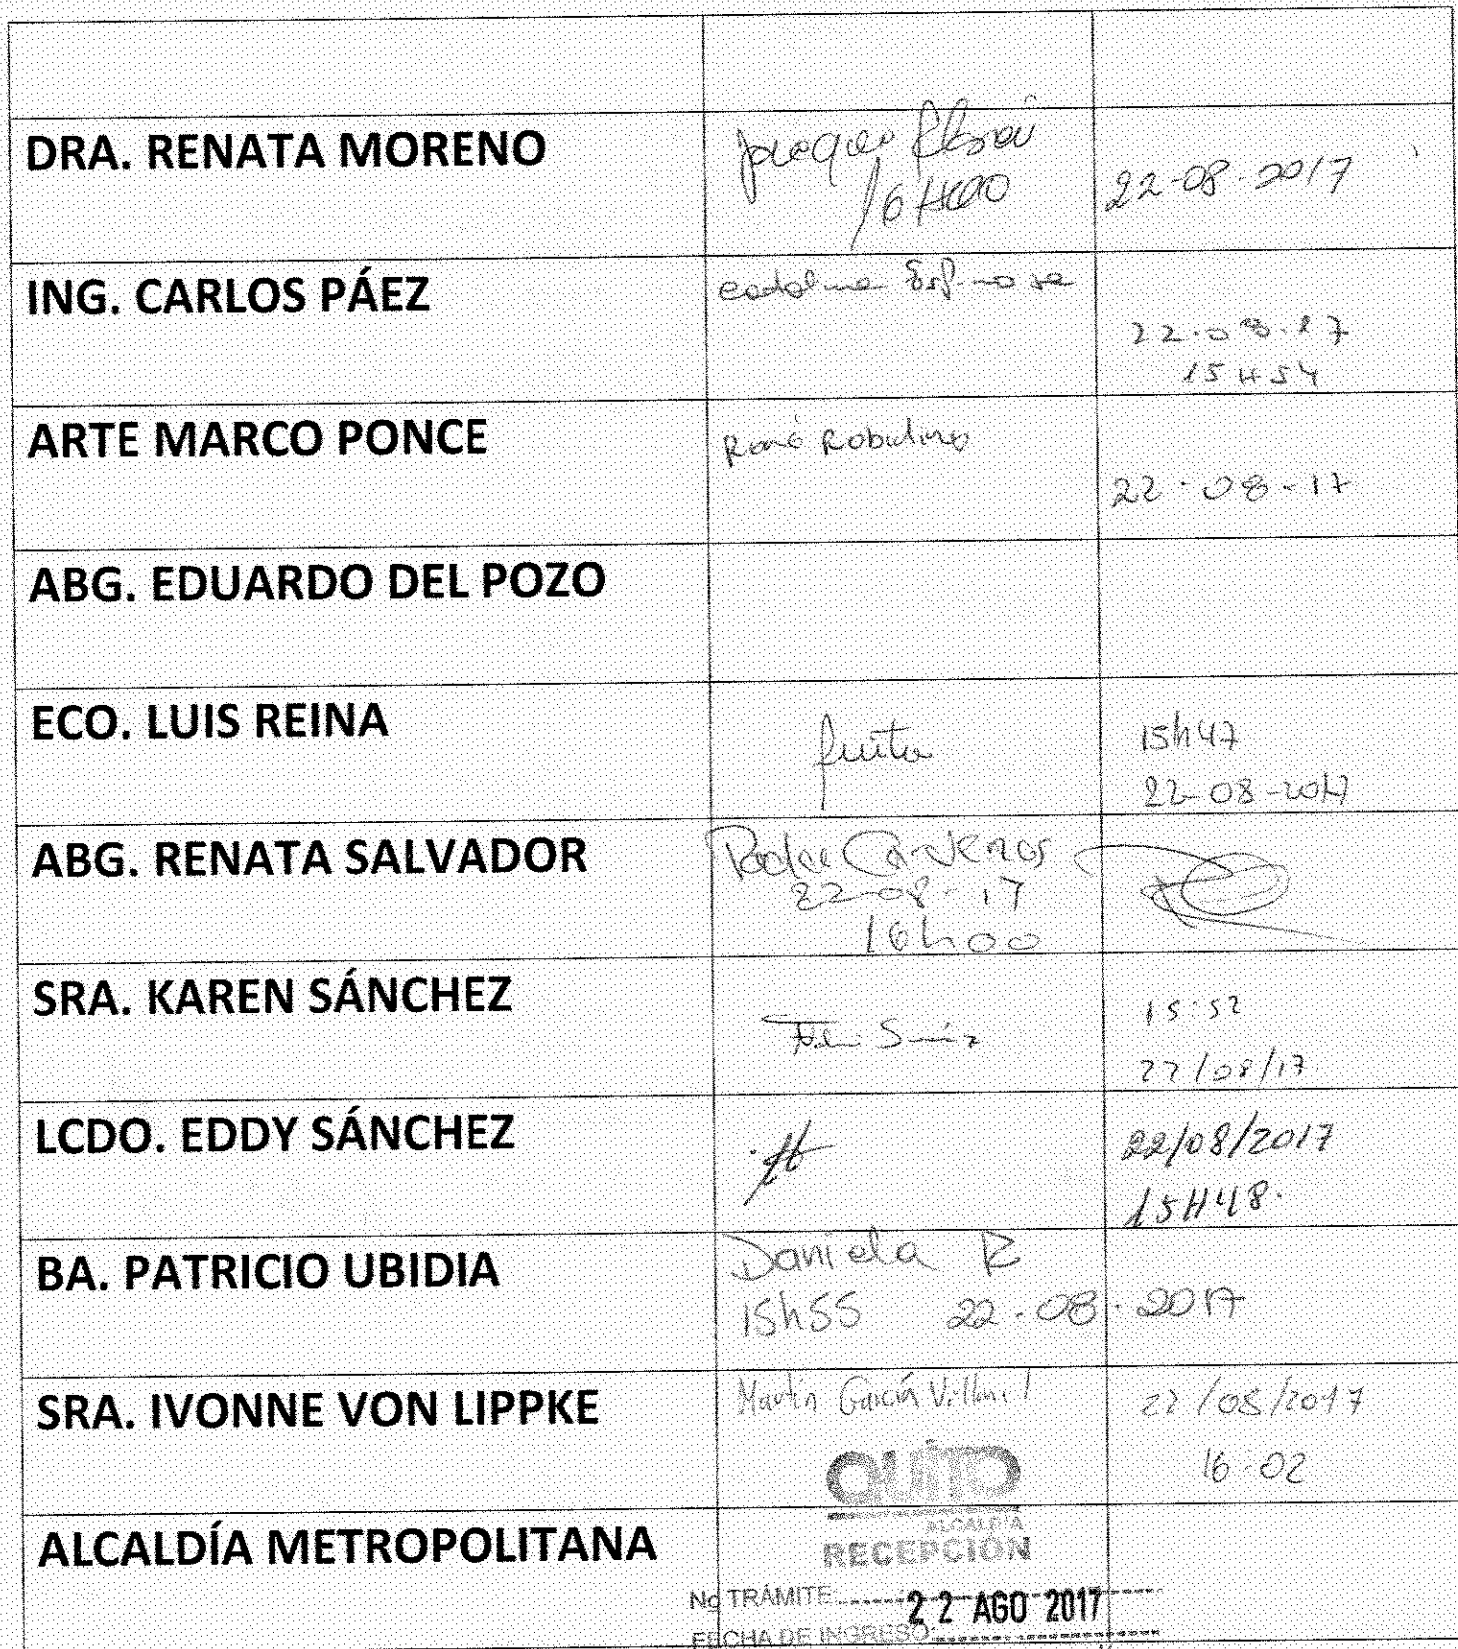 DRA. RENATA MORENO
16H00
22-08-2017
ING. CARLOS PÁEZ
Catalina Espinosa
22-08-17
15H54
ARTE MARCO PONCE
René Robalino
22-08-17
ABG. EDUARDO DEL POZO
ECO. LUIS REINA
15h47
22-08-2017
ABG. RENATA SALVADOR
Cárdenas
22-08-17
16h00
SRA. KAREN SÁNCHEZ
15:52
22/08/17
LCDO. EDDY SÁNCHEZ
22/08/2017
15H48.
BA. PATRICIO UBIDIA
Daniela R
15h55 22-08-2017
SRA. IVONNE VON LIPPKE
Martín García
22/08/2017
16-02
QUITO
ALCALDÍA
RECEPCIÓN
ALCALDÍA METROPOLITANA
No TRÁMITE:
22 AGO 2017
FECHA DE INGRESO: